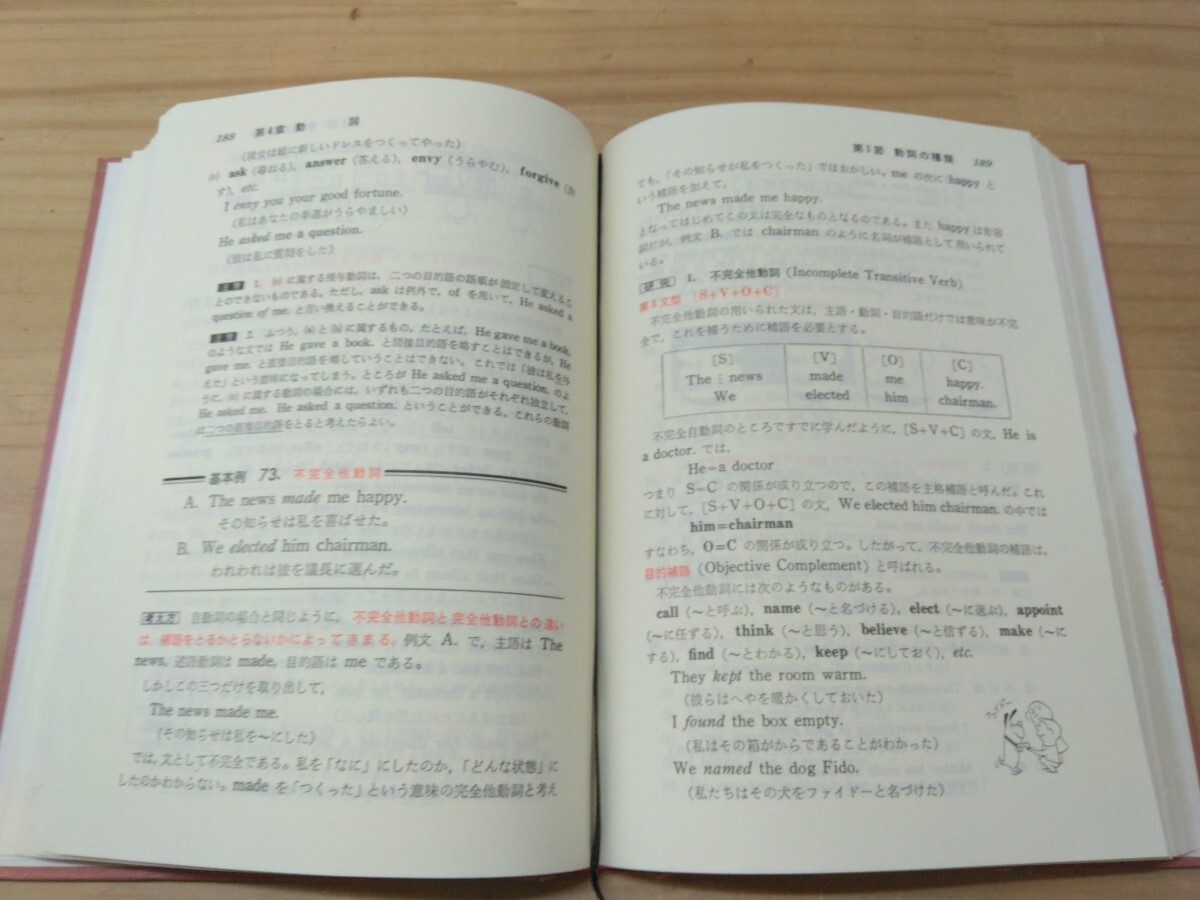 188 第4章 動 詞
(彼女は娘に新しいドレスをつくってやった)
(c) ask (尋ねる), answer (答える), envy (うらやむ), forgive (許
す), etc.
I envy you your good fortune.
(私はあなたの幸運がうらやましい)
He asked me a question.
(彼は私に質問をした)
注意 1. (c) に属する授与動詞は, 二つの目的語の語順が固定して変えるこ
とのできないものである。ただし, ask は例外で, of を用いて, He asked a
question of me. と言い換えることができる。
注意 2. ふつう, (a) と (b) に属するもの, たとえば, He gave me a book.
のような文では He gave a book. と間接目的語を略すことはできるが, He
gave me. と直接目的語を略していうことはできない。これでは「彼は私を与
えた」という意味になってしまう。ところが He asked me a question. のよ
うに, (c) に属する動詞の場合には, いずれも二つの目的語がそれぞれ独立して,
He asked me. He asked a question. ということができる。これらの動詞
は二つの直接目的語をとると考えたらよい。
基本例 73. 不完全他動詞
A. The news made me happy.
その知らせは私を喜ばせた。
B. We elected him chairman.
われわれは彼を議長に選んだ。
考え方 自動詞の場合と同じように, 不完全他動詞と完全他動詞との違い
は, 補語をとるかとらないかによってきまる。例文 A. で, 主語は The
news, 述語動詞は made, 目的語は me である。
しかしこの三つだけを取り出して,
The news made me.
(その知らせは私を〜にした)
では, 文として不完全である。私を「なに」にしたのか, 「どんな状態」に
したのかわからない。made を「つくった」という意味の完全他動詞と考え
第1節 動詞の種類 189
ても, 「その知らせが私をつくった」ではおかしい。me の次に happy と
いう補語を加えて,
The news made me happy.
となってはじめてこの文は完全なものとなるのである。また happy は形容
詞だが, 例文 B. では chairman のように名詞が補語として用いられて
いる。
研究 1. 不完全他動詞 (Incomplete Transitive Verb)
第5文型 [S+V+O+C]
不完全他動詞の用いられた文は, 主語・動詞・目的語だけでは意味が不完
全で, これを補うために補語を必要とする。
[S] [V] [O] [C]
The news made me happy.
We elected him chairman.
不完全自動詞のところですでに学んだように, [S+V+C] の文, He is
a doctor. では,
He=a doctor
つまり S=C の関係が成り立つので, この補語を主格補語と呼んだ。これ
に対して, [S+V+O+C] の文, We elected him chairman. の中では
him=chairman
すなわち, O=C の関係が成り立つ。したがって, 不完全他動詞の補語は,
目的補語 (Objective Complement) と呼ばれる。
不完全他動詞には次のようなものがある。
call (〜と呼ぶ), name (〜と名づける), elect (〜に選ぶ), appoint
(〜に任ずる), think (〜と思う), believe (〜と信ずる), make (〜に
する), find (〜とわかる), keep (〜にしておく), etc.
They kept the room warm.
(彼らはへやを暖かくしておいた)
I found the box empty.
(私はその箱がからであることがわかった)
We named the dog Fido.
(私たちはその犬をファイドーと名づけた)